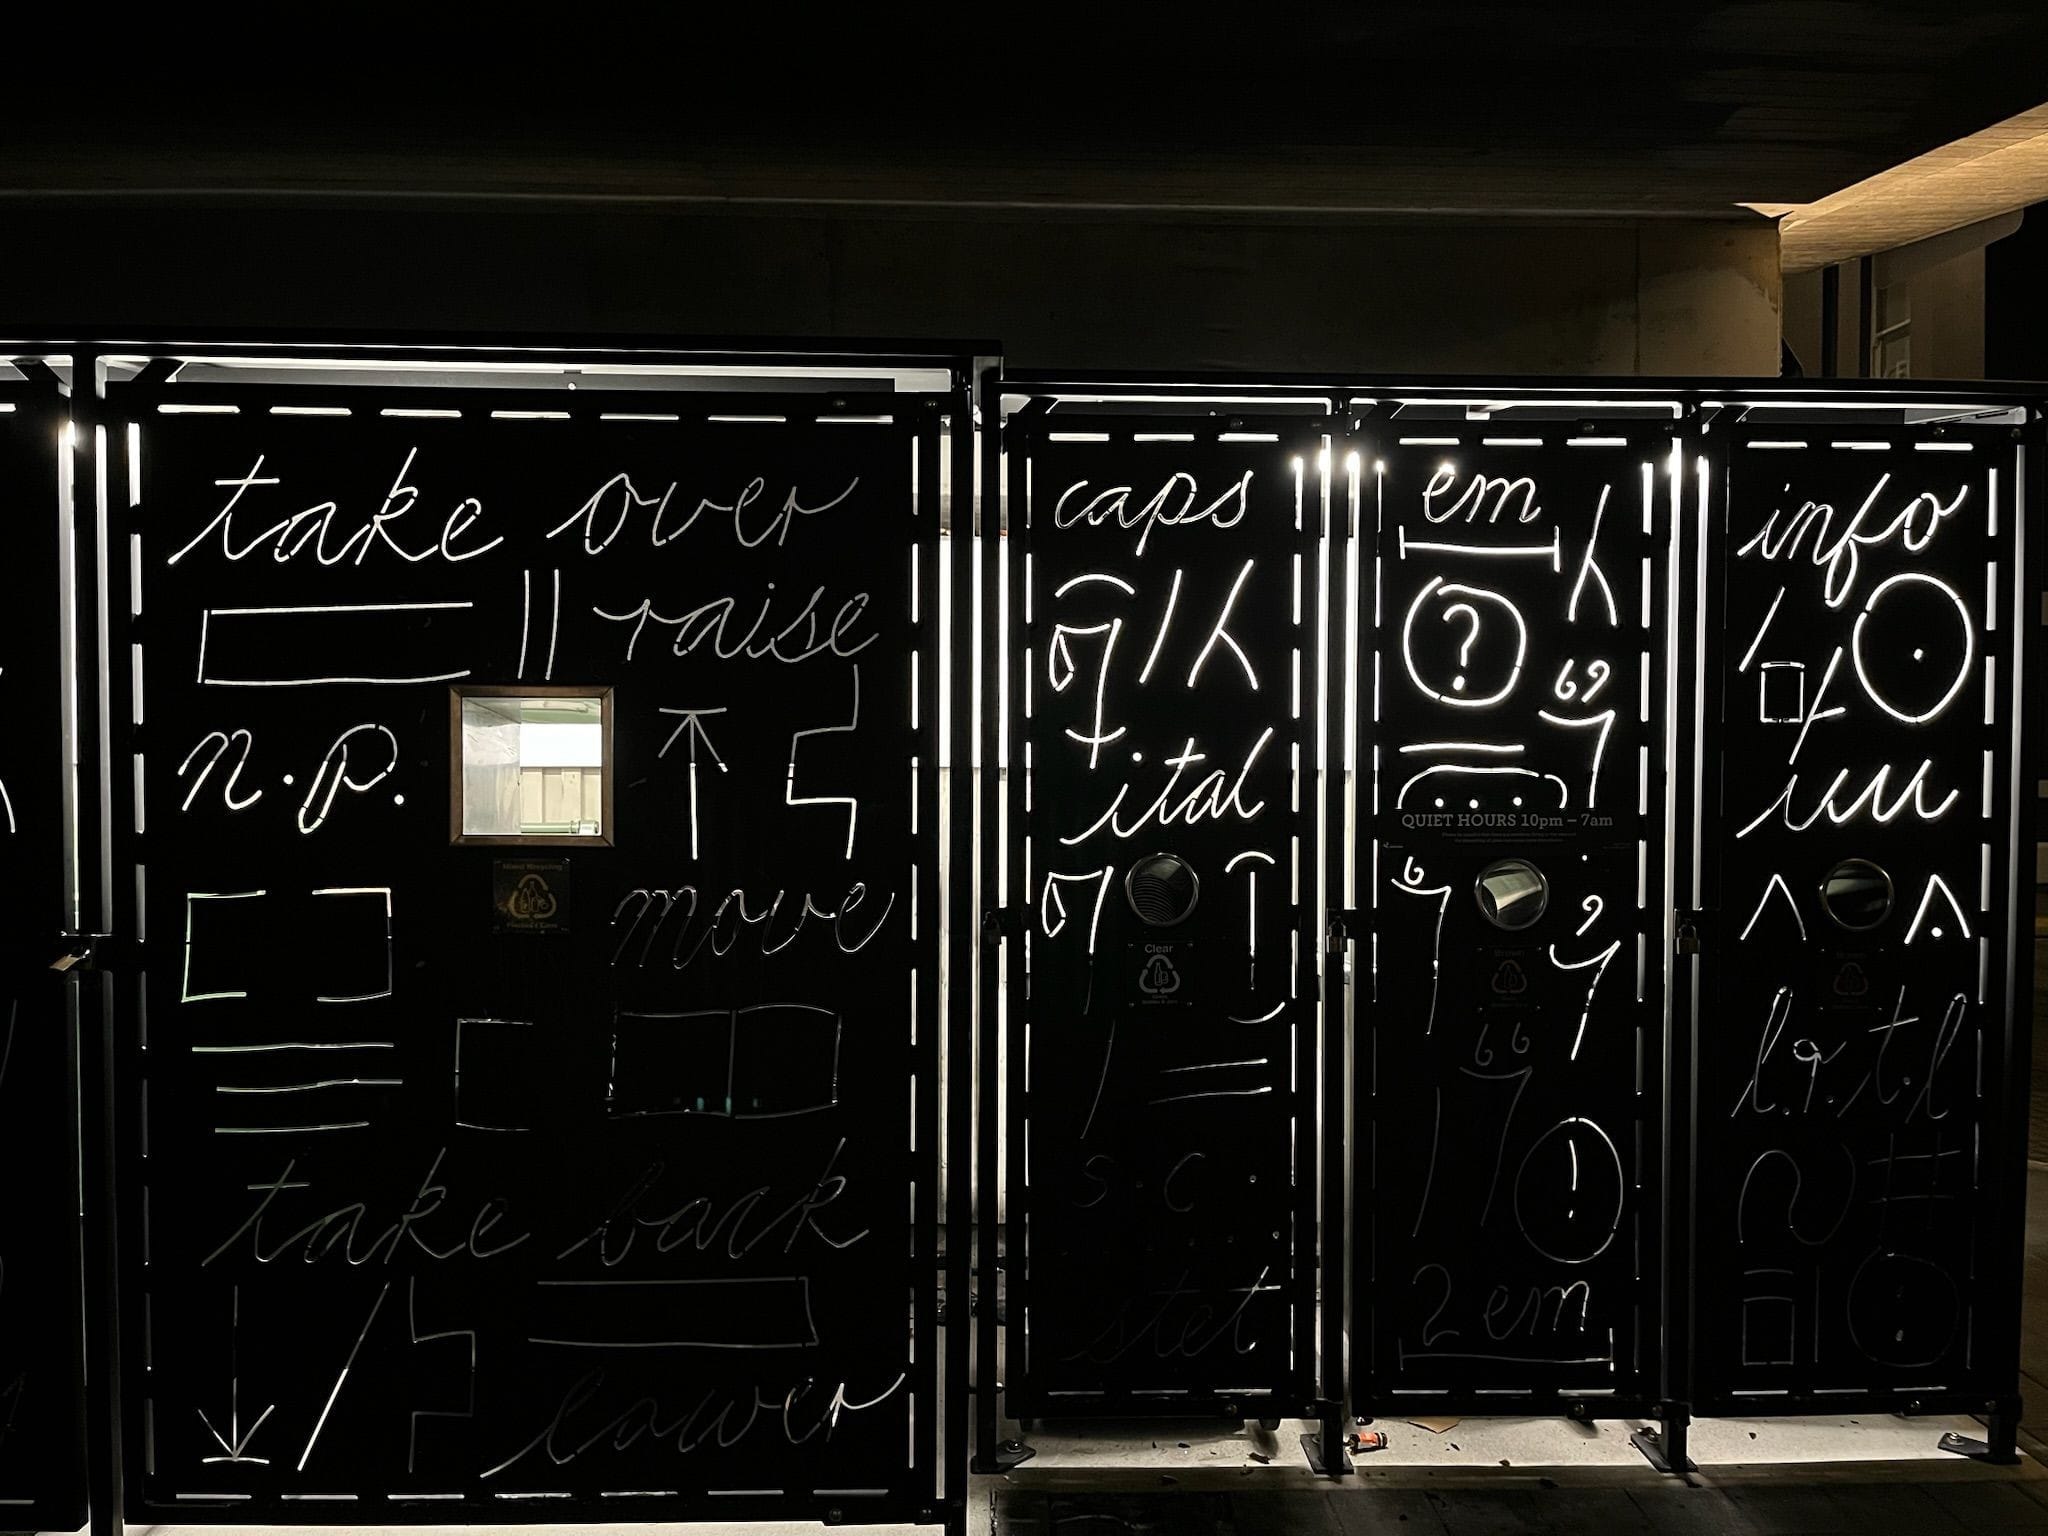 take over
raise
n.p.
move
take back
lower
caps
ital
s.c.
stet
em
?
QUIET HOURS 10pm – 7am
!
2 em
info
Mixed Recycling
Clear
#